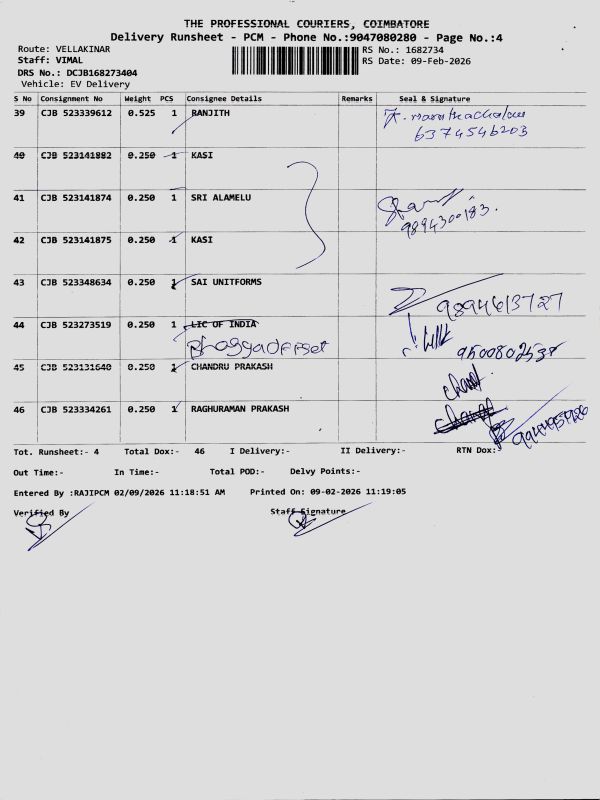 THE PROFESSIONAL COURIERS, COIMBATORE
Delivery Runsheet - PCM - Phone No.:9047080280 - Page No.:4
Route: VELLAKINAR RS No.: 1682734
Staff: VIMAL RS Date: 09-Feb-2026
DRS No.: DCJB168273404
Vehicle: EV Delivery
S No Consignment No Weight PCS Consignee Details Remarks Seal & Signature
39 CJB 523339612 0.525 1 RANJITH
6374546203
40 CJB 523141882 0.250 1 KASI
41 CJB 523141874 0.250 1 SRI ALAMELU
9894300183.
42 CJB 523141875 0.250 1 KASI
43 CJB 523348634 0.250 1 SAI UNITFORMS 9894613727
44 CJB 523273519 0.250 1 LIC OF INDIA
45 CJB 523131640 0.250 1 CHANDRU PRAKASH
46 CJB 523334261 0.250 1 RAGHURAMAN PRAKASH
Tot. Runsheet:- 4 Total Dox:- 46 I Delivery:- II Delivery:- RTN Dox:-
Out Time:- In Time:- Total POD:- Delvy Points:-
Entered By :RAJIPCM 02/09/2026 11:18:51 AM Printed On: 09-02-2026 11:19:05
Verified By Staff Signature